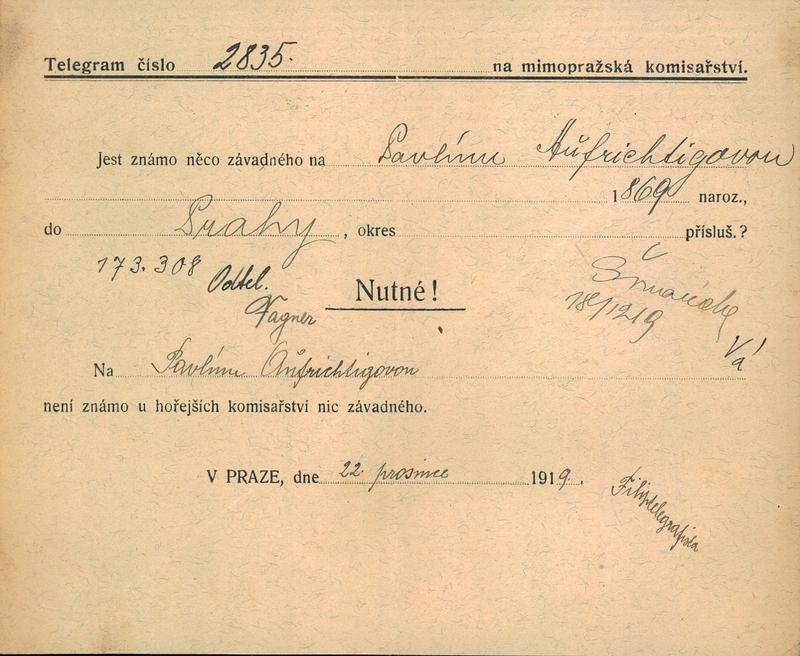 Telegram číslo 2835. na mimopražská komisařství.
Jest známo něco závadného na Pavlínu Aufrichtigovou
1869 naroz.,
do Prahy, okres přísluš.?
173.308 Odtel.
Vagner
Nutné!
18/12 19
Na Pavlínu Aufrichtigovou
není známo u hořejších komisařství nic závadného.
V PRAZE, dne 22. prosince 1919.
Filip telegrafista